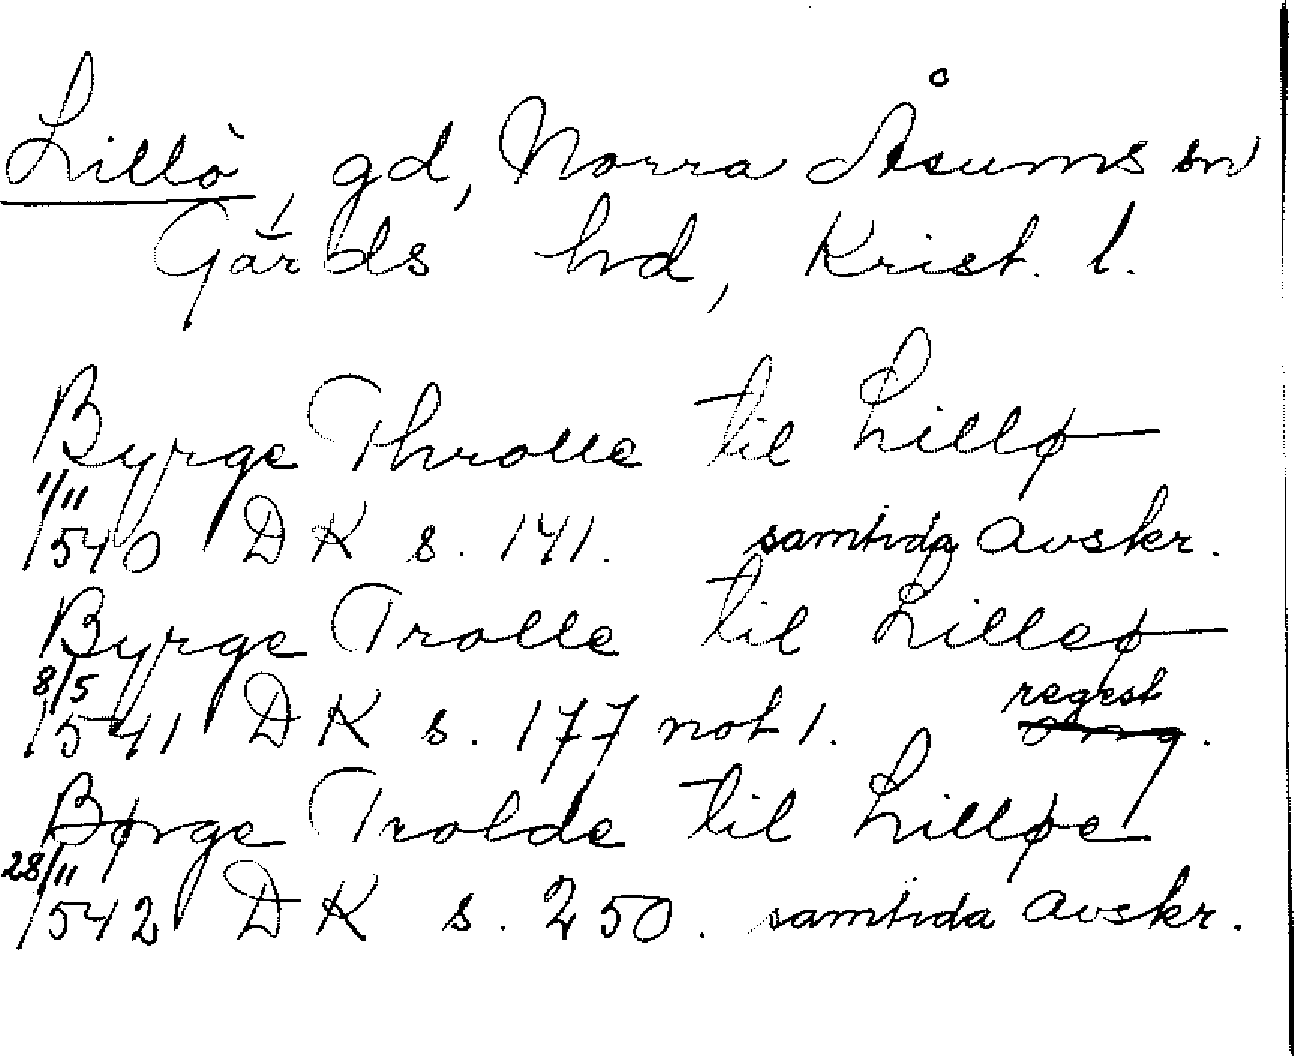 Lillö, gd, Norra Åsums sn
Gärds hd, Krist. l.
Byrge Throlle til Lillø
1/11
1540 DK s. 141. samtida avskr.
Byrge Trolle til Lilleø
8/5 regest
1541 DK s. 177 not 1.
Børge Trolde til Lilløe
28/11
1542 DK s. 250. samtida avskr.